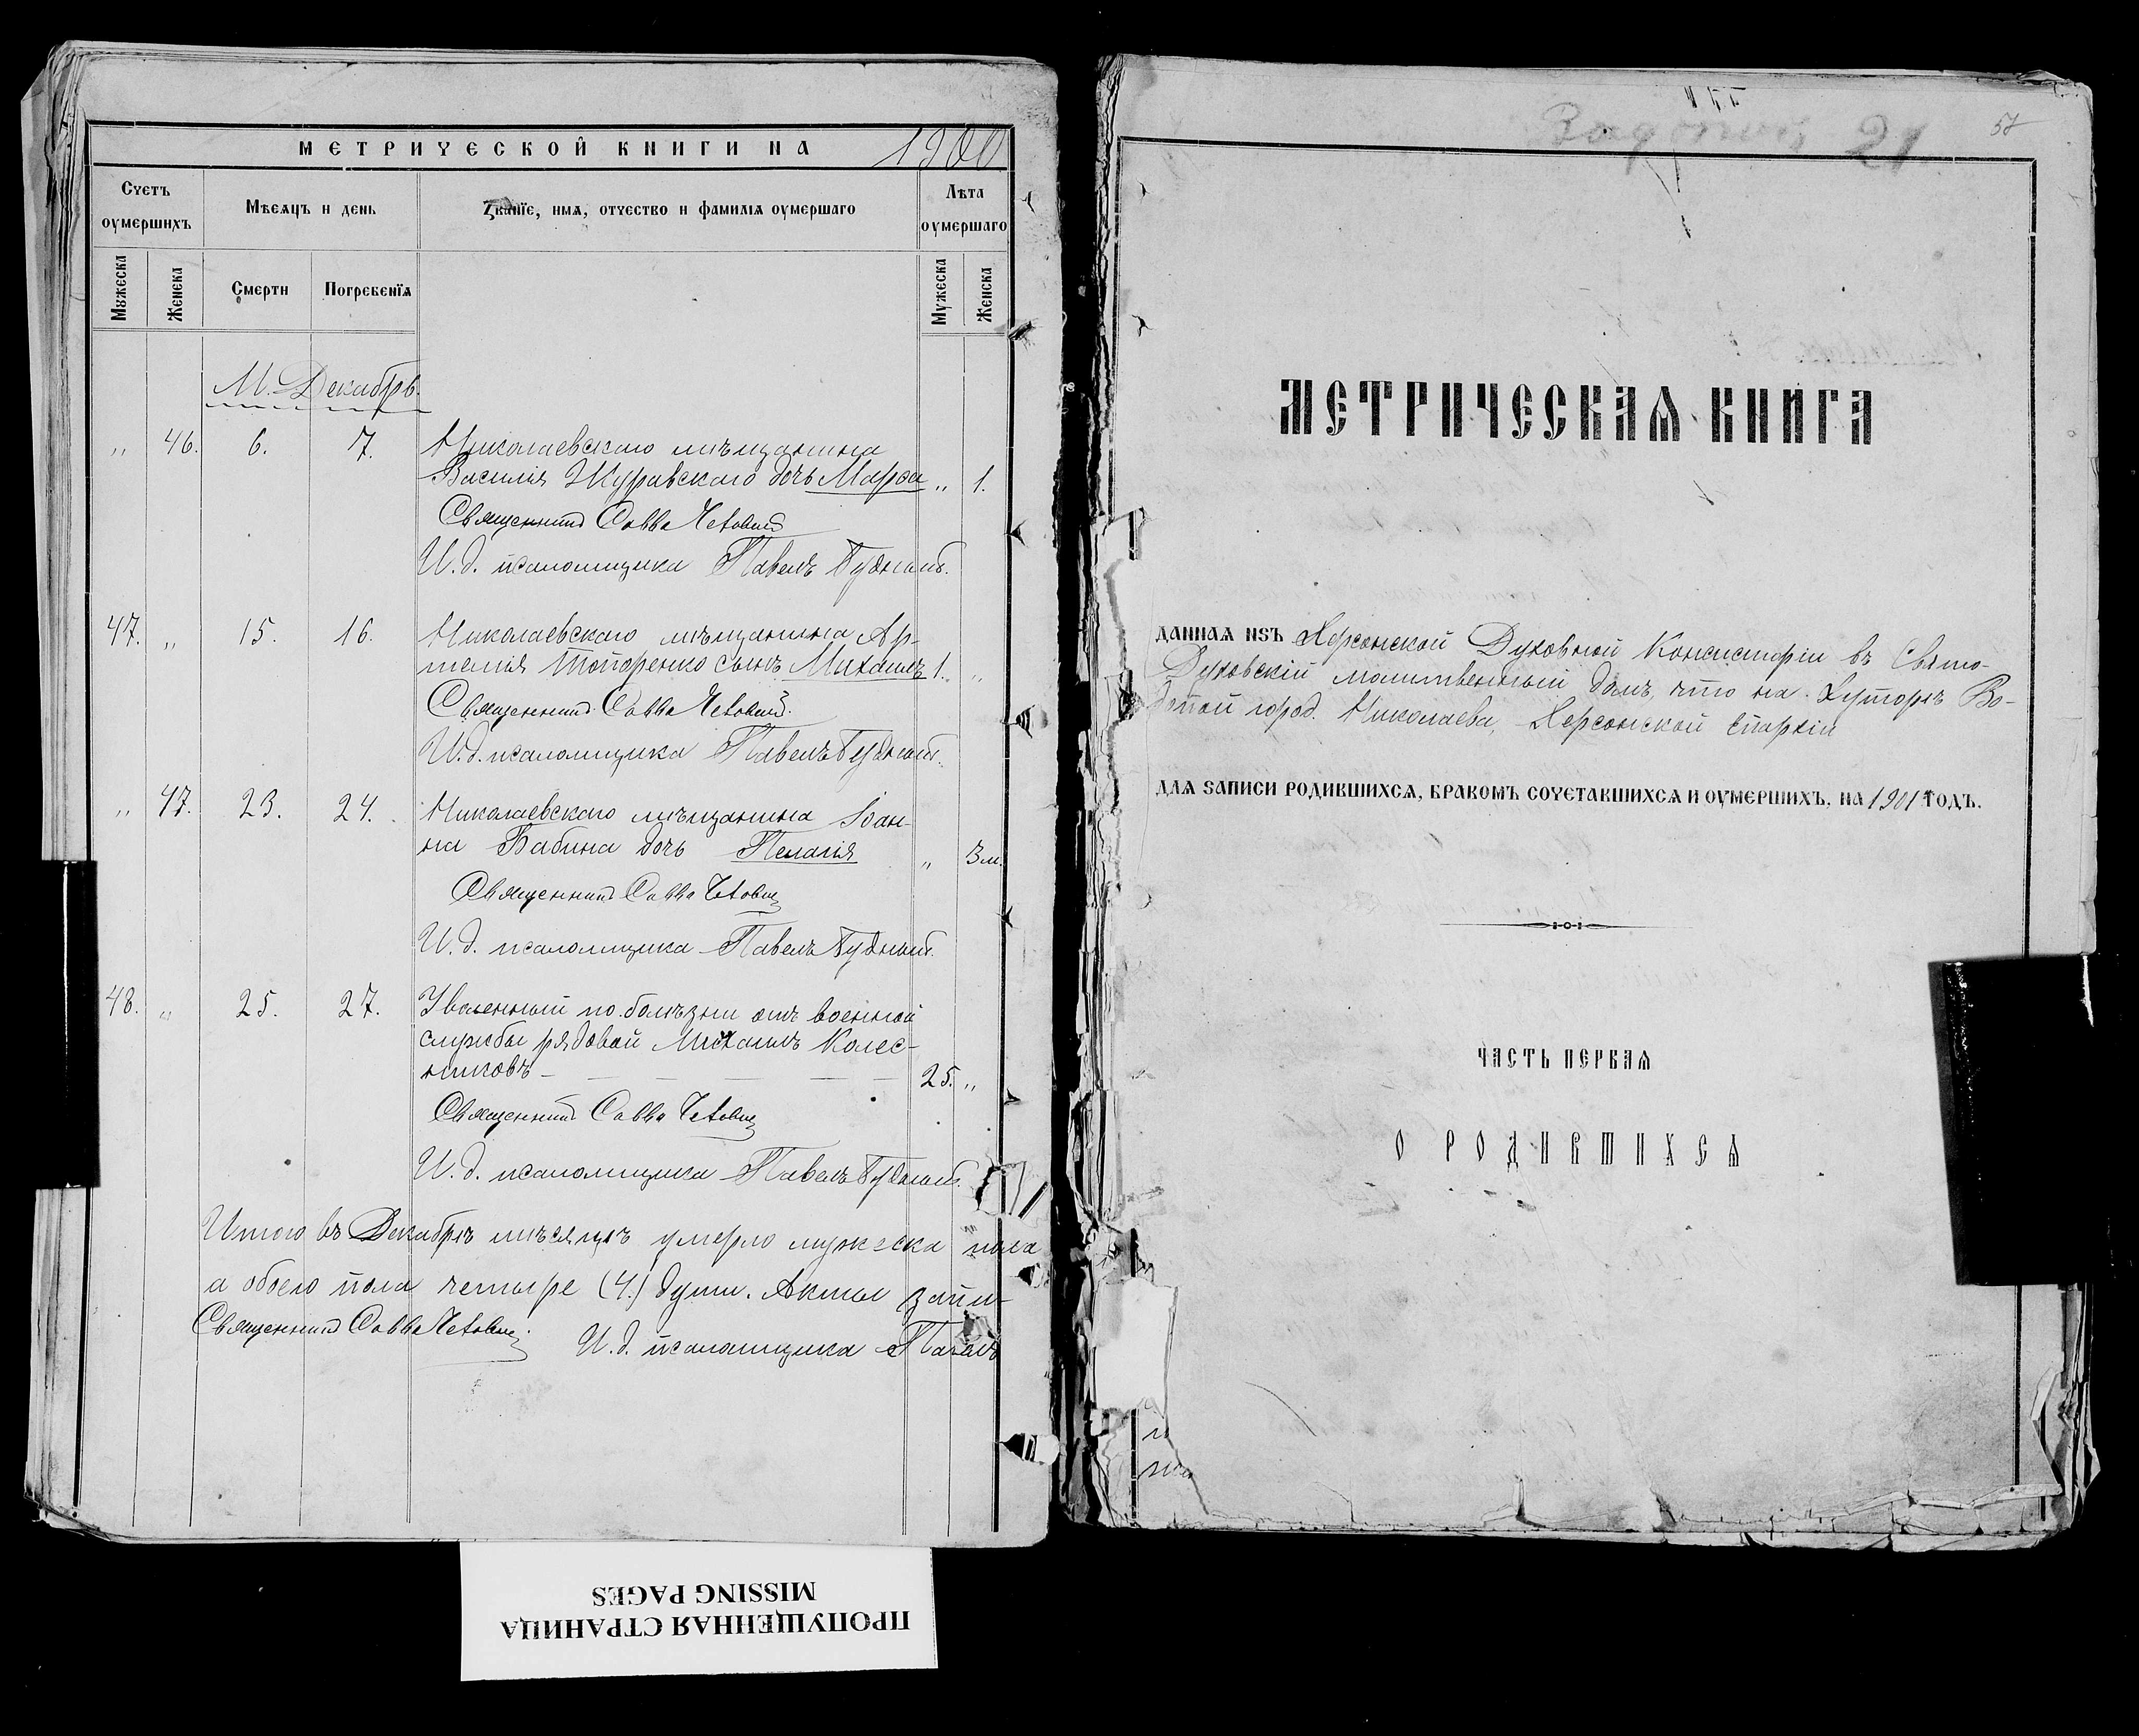 МЕТРИЧЕСКОЙ КНИГИ НА 1900
Счетъ оумершихъ
Мѣсяцъ и день
Званїе, имя, отчество и фамилія оумершаго
Лѣта оумершаго
Мужеска
Женска
Смерти
Погребенїя
Мужеска
Женска
М. Декабрь.
„ 46. 6. 7. Николаевскаго мѣщанина
Василія Журавскаго дочь Марѳа „ 1.
Священникъ Савва
И. д. псаломщика Павелъ
47. „ 15. 16. Николаевскаго мѣщанина Ар-
темія Топоренко сынъ Михаилъ 1. „
Священникъ Савва
И. д. псаломщика Павелъ
„ 47. 23. 24. Николаевскаго мѣщанина Іоан-
на Бабина дочь Пелагія „ 3 м.
Священникъ Савва
И. д. псаломщика Павелъ
48. „ 25. 27. Уволенный по болѣзни отъ военной
службы рядовой Михаилъ Колес-
никовъ 25. „
Священникъ Савва
И. д. псаломщика Павелъ
Итого въ Декабрѣ мѣсяцѣ умерло мужеска пола
а обоего пола четыре (4.) души. Акты запи-
Священникъ Савва
И. д. псаломщика Павелъ
ПРОПУЩЕННАЯ СТРАНИЦА
MISSING PAGES
21
57
МЕТРИЧЕСКАЯ КНИГА
ДАННАЯ ИЗЪ Херсонской Духовной Консисторіи въ Свято-
Духовскій молитвенный домъ, что на Хуторѣ Во-
допой город. Николаева, Херсонской Епархіи
ДЛЯ ЗАПИСИ РОДИВШИХСЯ, БРАКОМЪ СОЧЕТАВШИХСЯ И ОУМЕРШИХЪ, НА 1901 ГОДЪ.
ЧАСТЬ ПЕРВАЯ
О РОДИВШИХСЯ